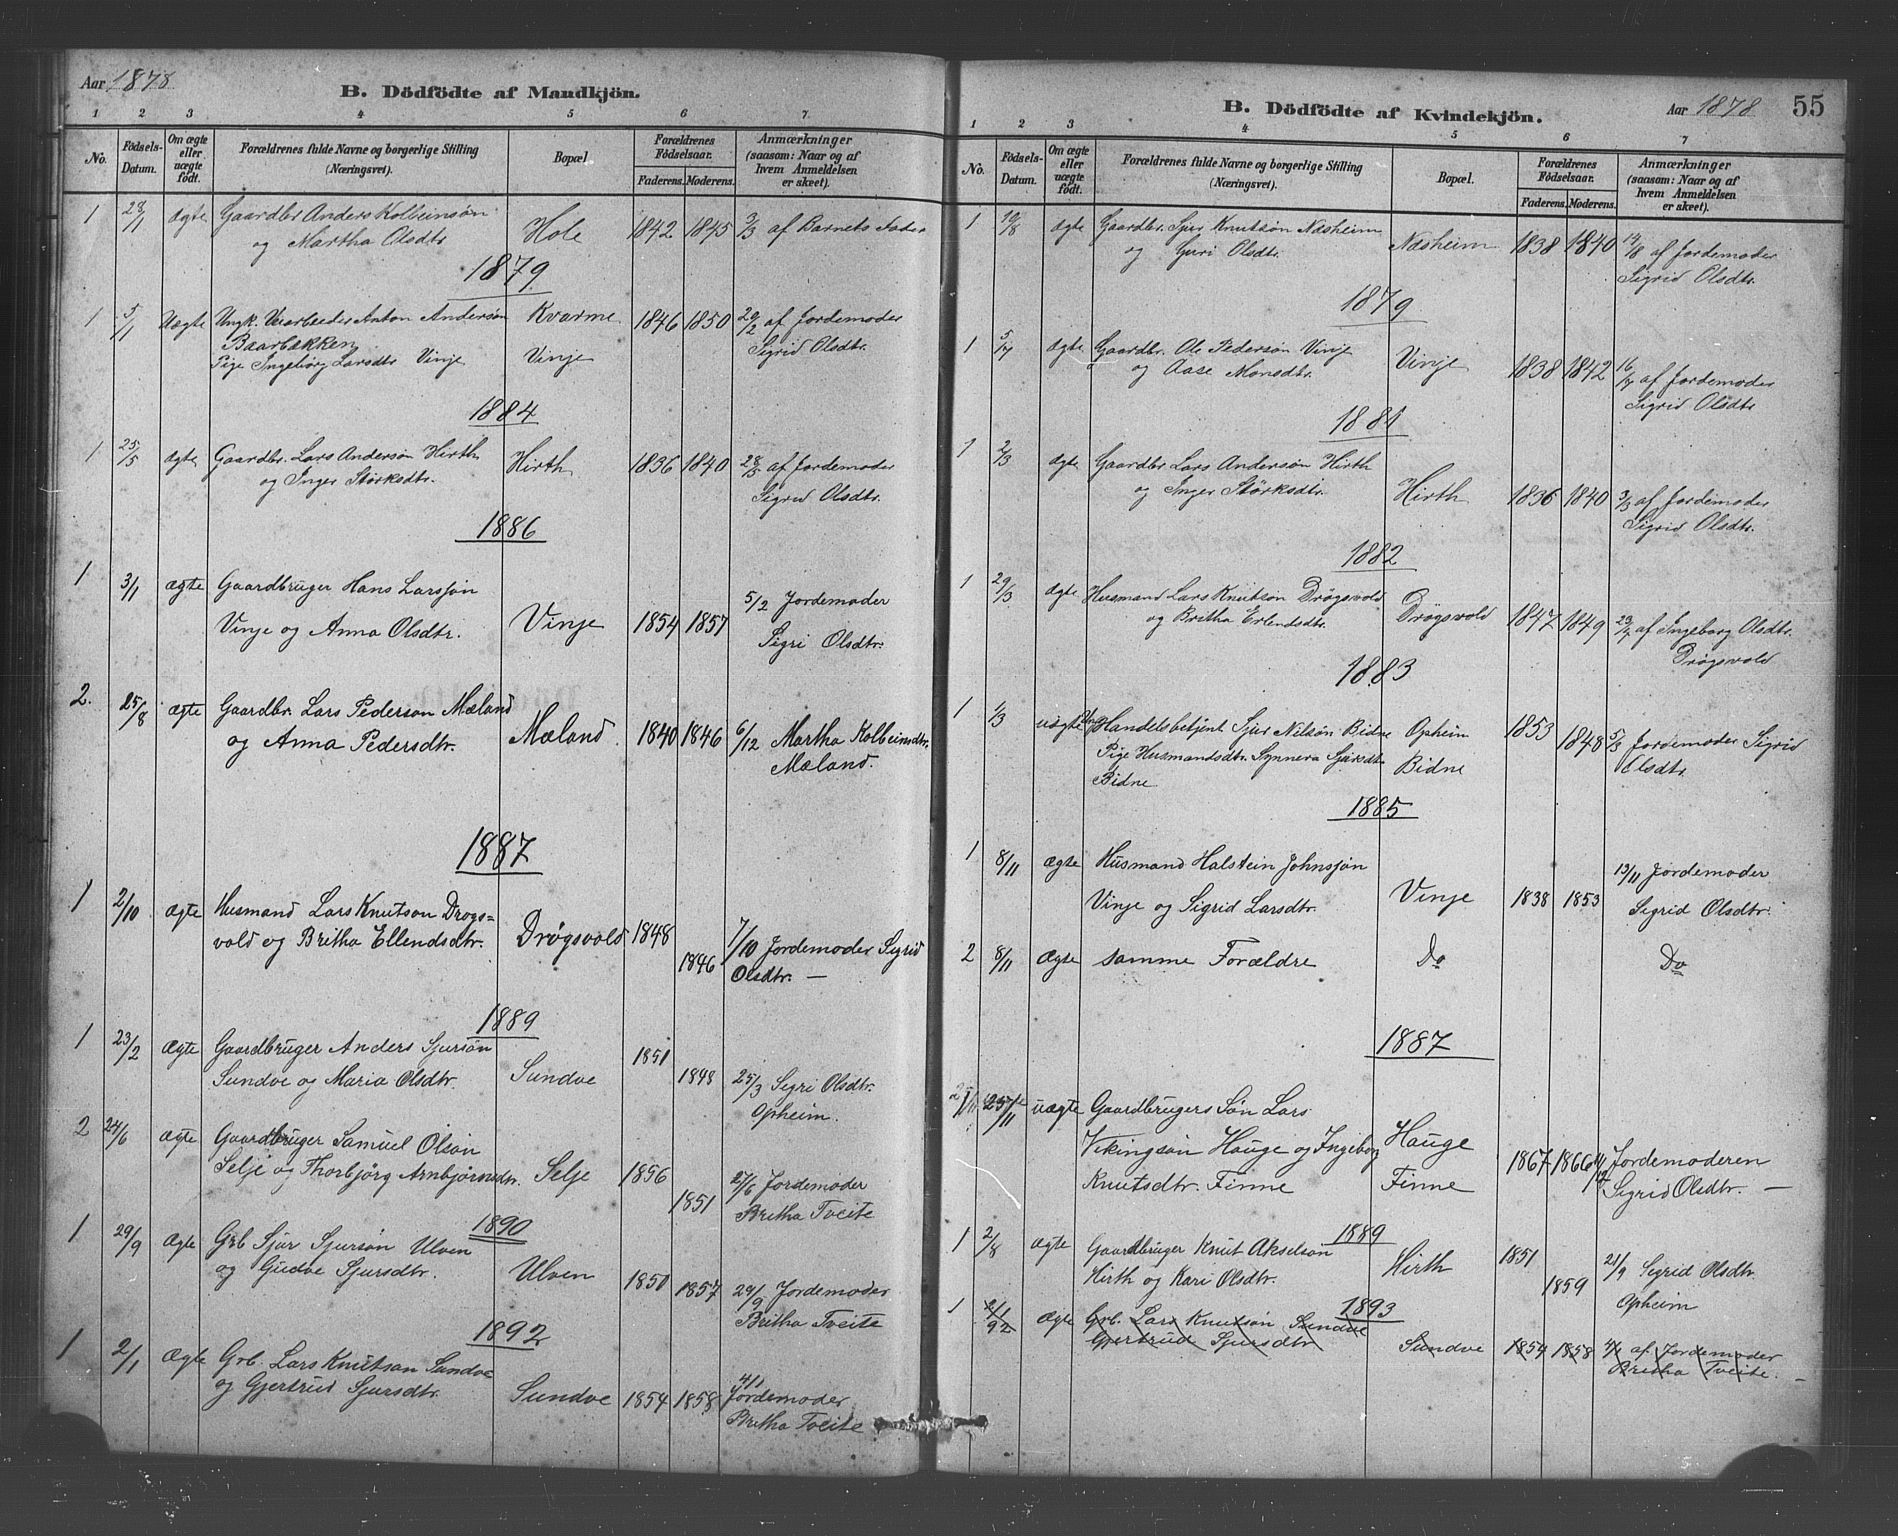 Aar 1878
B. Dödfödte af Mandkjön.
1 2 3 4 5 6 7
No. Födsels-Datum. Om ægte eller uægte födt. Forældrenes fulde Navne og borgerlige Stilling (Næringsvei). Bopæl. Forældrenes Födselsaar. Faderens. Moderens. Anmærkninger (saasom: Naar og af hvem Anmeldelsen er skeet).
1 28/1 ægte Gaardbr Anders Kolbeinsøn
og Martha Olsdtr Hole 1842 1845 3/3 af Barnets Fader
1879
1 5/1 Uægte Ungk. Anton Andersøn Kvarme 1846 1850 20/2 af Jordemoder
Baarbækken Sigrid Olsdtr.
Pige Ingebörg Larsdtr Vinje Vinje
1884
1 25/5 ægte Gaardbr. Lars Andersøn Hirth Hirth 1836 1840 28/5 af Jordemoder
og Inger Störksdtr. Sigrid Olsdtr.
1886
1 3/1 ægte Gaardbruger Hans Larssøn
Vinje og Anna Olsdtr. Vinje 1854 1857 5/2 Jordemoder
Sigri Olsdtr.
2. 25/8 ægte Gaardbr. Lars Pederson Mæland
og Anna Pedersdtr. Mæland. 1840 1846 6/12 Martha Kolbeinsdtr.
Mæland.
1887
1 2/10 ægte Husmand Lars Knutson Drogs=
vold og Britha Ellendsdtr. Drøgsvold 1848 1846 7/10 Jordemoder Sigrid
Olsdtr. —
1889
1 23/2 Ægte Gaardbruger Anders Sjursøn
Sundve og Maria Olsdtr. Sundve 1851 1848 25/3 Sigri Olsdtr.
Opheim.
2 24/6 ægte Gaardbruger Samuel Olsøn
Selje og Thorbjörg Arnbjørnsdtr. Selje 1856 1851 27/6 Jordemoder
Britha Tveite
1890
1 29/9 Ægte Grb Sjur Sjursøn Ulven
og Gudve Sjursdtr. Ulven 1851 1857 29/9 Jordemoder
Britha Tveite
1892
1 2/1 Ægte Grb. Lars Knutsøn Sundve
og Gjertrud Sjursdtr. Sundve 1854 1858 4/1 Jordemoder
Britha Tveite
B. Dödfödte af Kvindekjön. Aar 1878 55
1 2 3 4 5 6 7
No. Födsels-Datum. Om ægte eller uægte födt. Forældrenes fulde Navne og borgerlige Stilling (Næringsvei). Bopæl. Forældrenes Födselsaar. Faderens. Moderens. Anmærkninger (saasom: Naar og af hvem Anmeldelsen er skeet).
1 10/8 ægte Gaardbr. Sjur Knutsøn Næsheim
og Guri Olsdtr. Næsheim 1838 1840 14/8 af Jordemoder
Sigrid Olsdtr.
1879
1 ægte Gaardbr. Ole Pedersøn Vinje
og Aase Monsdtr. Vinje 1838 1842 af Jordemoder
Sigrid Olsdtr
1881
1 2/3 ægte Gaardbr Lars Andersøn Hirth
og Inger Störksdtr. Hirth 1836 1840 3/3 af Jordemoder
Sigrid Olsdtr.
1882
1 29/3 ægte Husmand Lars Knutsøn Drögsvold
og Britha Erlendsdtr. Drögsvold 1847 1849 af Ingeborg Olsdtr.
Drögsvold
1883
1 1/3 uægte Handelsbetjent Sjur Nilsøn Bidne Opheim 1853 1848 5/3 Jordemoder Sigrid
Pige Husmandsdtr. Synneva Sjursdtr Bidne Olsdtr.
Bidne
1885
1 8/11 ægte Husmand Halstein Johnsjøn
Vinje og Sigrid Larsdtr. Vinje 1838 1853 13/11 Jordemoder
Sigrid Olsdtr.
2 8/11 ægte samme Forældre Do Do
1887
25/11 uægte Gaardbrugers Søn Lars
Vikingsøn Hauge og Ingeborg Hauge
Knutsdtr. Finne Finne 1867 1866 Jordemoderen
Sigrid Olsdtr. —
1889
1 2/8 ægte Gaardbruger Knut Akselsøn
Hirth og Kari Olsdtr. Hirth 1851 1859 21/9 Sigrid Olsdtr.
Opheim
1893
1 2/1 92 ægte Grb. Lars Knutsøn Sundve
Gjertrud Sjursdtr Sundve 1854 1858 4/1 af Jordemoder
Britha Tveite. —